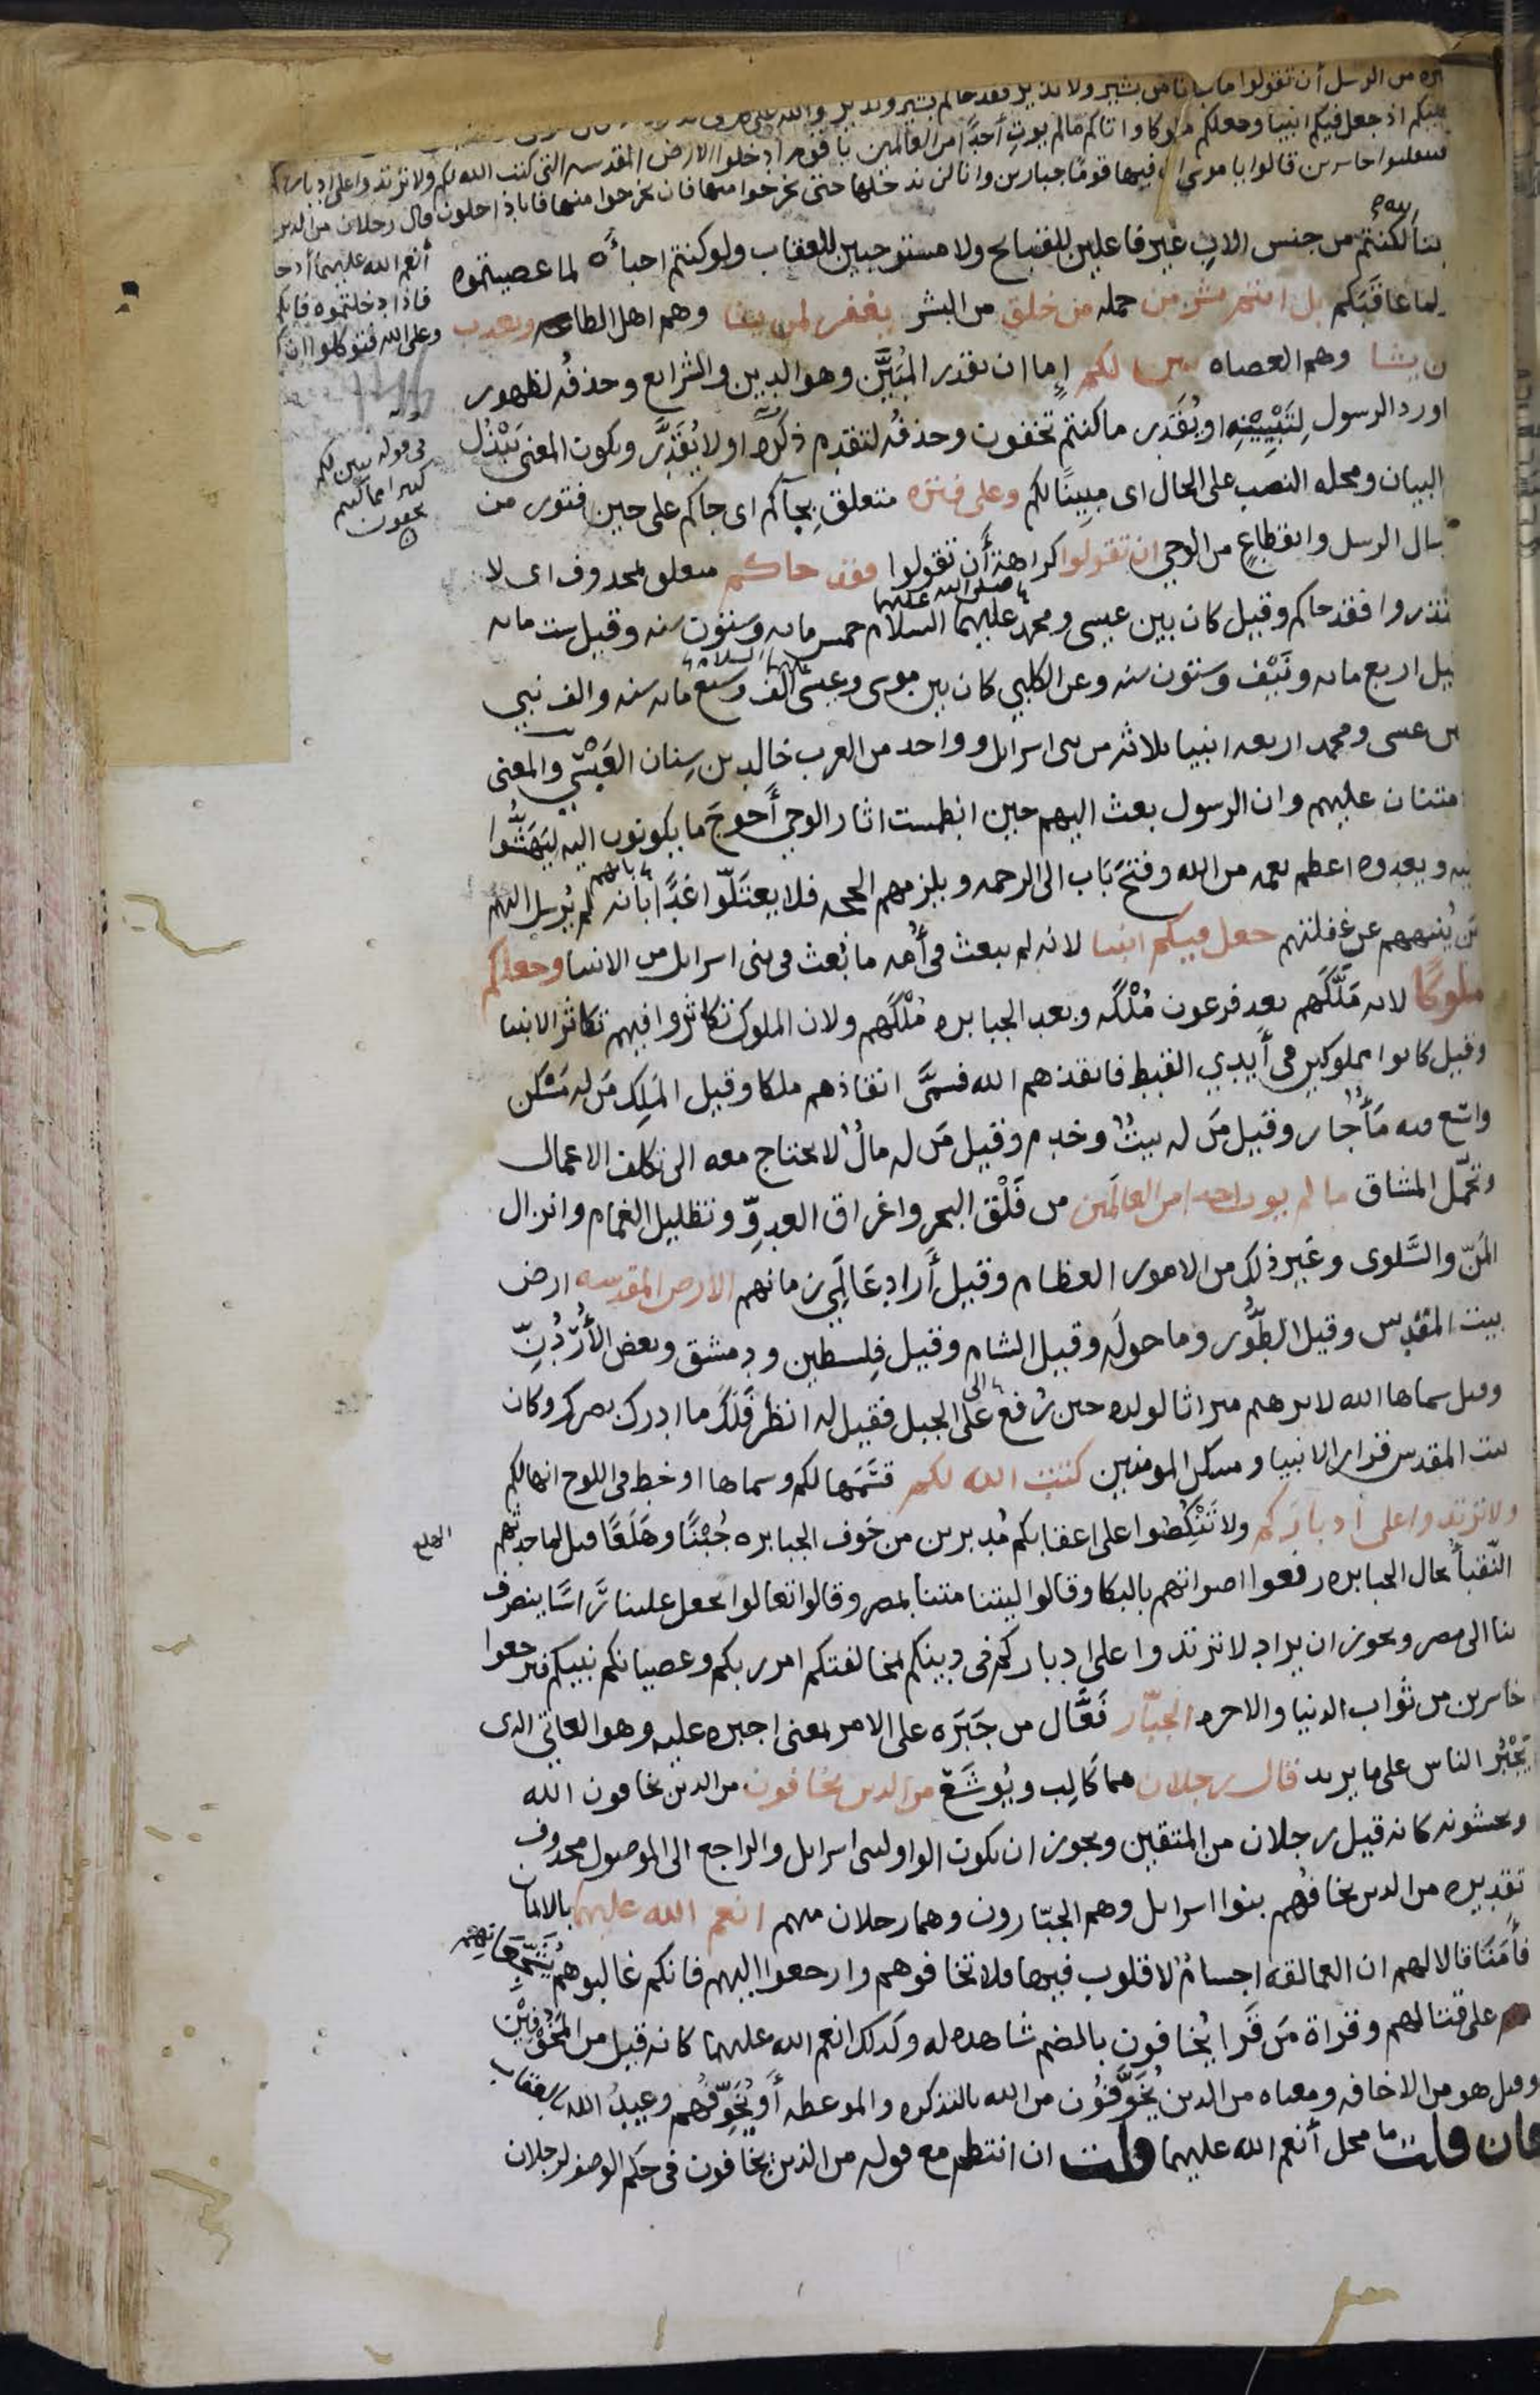 من الرسل أن تقولوا ما جانا من بشير ولا نذير فقد جاكم بشير ونذير والله على
عليكم اذ جعل فيكم انبيا وجعلكم ملوكا واتاكم مالم يوت أحدًا من العالمين يا قوم ادخلوا الارض المقدسه التى كتب الله لكم ولا ترتدوا على ادباركم
فتنقلبوا خاسرين قالوا يا موسى ان فيها قومًا جبارين وانا لن ندخلها حتى يخرجوا منها فان يخرجوا منها فانا داخلون قال رجلان من الذين
أنعم الله عليهما ادخلوا
فاذا دخلتموه فانكم
وعلى الله فتوكلوا ان
ابنا الله لكنتم من جنس الاب غير فاعلين للقبايح ولا مستوجبين للعقاب ولو كنتم احبأه لما عصيتموه
ولما عاقبكم بل انتم بشر من جمله من خلق من البشر يغفر لمن يشا وهم اهل الطاعه ويعذب
من يشا وهم العصاه يبين لكم إما ان يقدر المُبَيَّن وهو الدين والشرايع وحذفُه لظهور
ما ورد الرسول لِتَبْيِينِه او يُقَدر ما كنتم تخفون وحذفُه لتقدم ذكرِه او لا يُقَدَّر ويكون المعنى يَبْذُل
فى قوله يبين لكم
كثيرا مما كنتم
تخفون
لكم البيان ومحله النصب على الحال اى مبينًا لكم وعلى فترة متعلق بجآكم اى جاكم على حين فتور من
ارسال الرسل وانقطاعٍ من الوحي ان تقولوا كراهة أن تقولوا فقد جاكم متعلق بمحذوف اى لا
تعتذروا فقد جاكم وقيل كان بين عيسى ومحمد صلى الله عليهما عليهما السلام خمس مايه وستون سنه وقيل ست مايه
وقيل اربع مايه ونَيّف وستون سنه وعن الكلبي كان بين موسى وعيسى عليهما السلام الف وسبع مايه سنه والف نبي
وبين عيسى ومحمد اربعه انبيا ثلاثه من بنى اسرايل وواحد من العرب خالد بن سِنان العَبْسي والمعنى
الامتنان عليهم وان الرسول بعث اليهم حين انطمست اثار الوحي أحوجَ ما يكونون اليه ليَهَشُّوا
اليه ويعدوه اعظم نعمه من الله وفتحَ بَاب الى الرحمه ويلزمهم الحجه فلا يعتلّوا غدًا بانه بانهم لم يُرسل اليهم
مَن يُنبههم عن غفلتهم جعل فيكم انبيا لانه لم يبعث فى أُمه ما بُعث فى بنى اسرايل من الانبيا وجعلكم
ملوكًا لانه مَلَّكَهم بعد فرعون مُلْكَه وبعد الجبابره مُلْكَهم ولان الملوك تكاثروا فيهم تكاثر الانبيا
وقيل كانوا مملوكين فى أيدي القبط فانقذهم الله فسمَّى انقاذهم ملكا وقيل المَلِك مَن له مَسْكن
واسع فيه مَأٌ جارٍ وقيل مَن له بيتٌ وخدم وقيل مَن له مالٌ لا يحتاج معه الى تكلف الاعمال
وتحمّل المشاق ما لم يوت احدا من العالمين من فَلْق البحر واغراق العدوِّ وتظليل الغمام وانزال
المَنّ والسَّلوى وغير ذلك من الامور العظام وقيل أراد عَالَمِي زمانهم الارض المقدسه ارض
بيت المقدس وقيل الطُّور وما حولَه وقيل الشام وقيل فِلسطين ودمشق وبعض الأُرْدُنّ
وقيل سماها الله لابرهيم ميراثا لولده حين رُفع على الى الجبل فقيل له انظر فَلَكَ ما ادرك بصرك وكان
بيت المقدس قرار الانبيا ومسكن المومنين كتب الله لكم قسَّمَها لكم وسماها او خط فى اللوح انها لكم
ولا ترتدوا على ادباركم ولا تَنْكِصُوا على اعقابكم مُدبرين من خوف الجبابره جُبْنًا وهَلَعًا قيل لما حدثهم
الهلع
النّقبأ بحال الجبابره رفعوا اصواتهم بالبكا وقالوا ليتنا متنا بمصر وقالوا تعالوا نجعل علينا رَأسًا ينصرف
بنا الى مصر ويجوز ان يراد لا ترتدوا على ادباركم فى دينكم لمخالفتكم امر ربكم وعصيانكم نبيكم فترجعوا
خاسرين من ثواب الدنيا والاخره الجبّار فَعَّال من جَبَرَه على الامر بمعنى اجبره عليه وهو العاتي الذى
يَجْبُر الناس على ما يريد قال رجلان هما كَالِب ويُوشَع من الذين يخافون من الذين يخافون الله
ويخشونه كانه قيل رجلان من المتقين ويجوز ان يكون الواو لبنى اسرايل والراجع الى الموصول محذوف
تقديره من الذين يخافُهم بنوا اسرايل وهم الجبّارون وهما رجلان منهم انعم الله عليهما بالايمان
فأَمَنَا قالا لهم ان العمالقه اجسامٌ لا قلوب فيها فلا تخافوهم وارجعوا اليهم فانكم غالبوهم يُشَجِّعَانِهِم
على قتالهم وقراة مَن قرَا يُخافون بالضم شاهده له وكذلك انعم الله عليهما كانه قيل من المُخَوَّفِيْن
وقيل هو من الاخافه ومعناه من الذين يُخَوَّفُون من الله بالتذكره والموعظه أَو يُخَوِّفُهم وعيدُ الله بالعقاب
فان قلت ما محل أنعم الله عليهما قلت ان انتظم مع قوله من الذين يخافون فى حكم الوصف لرجلان